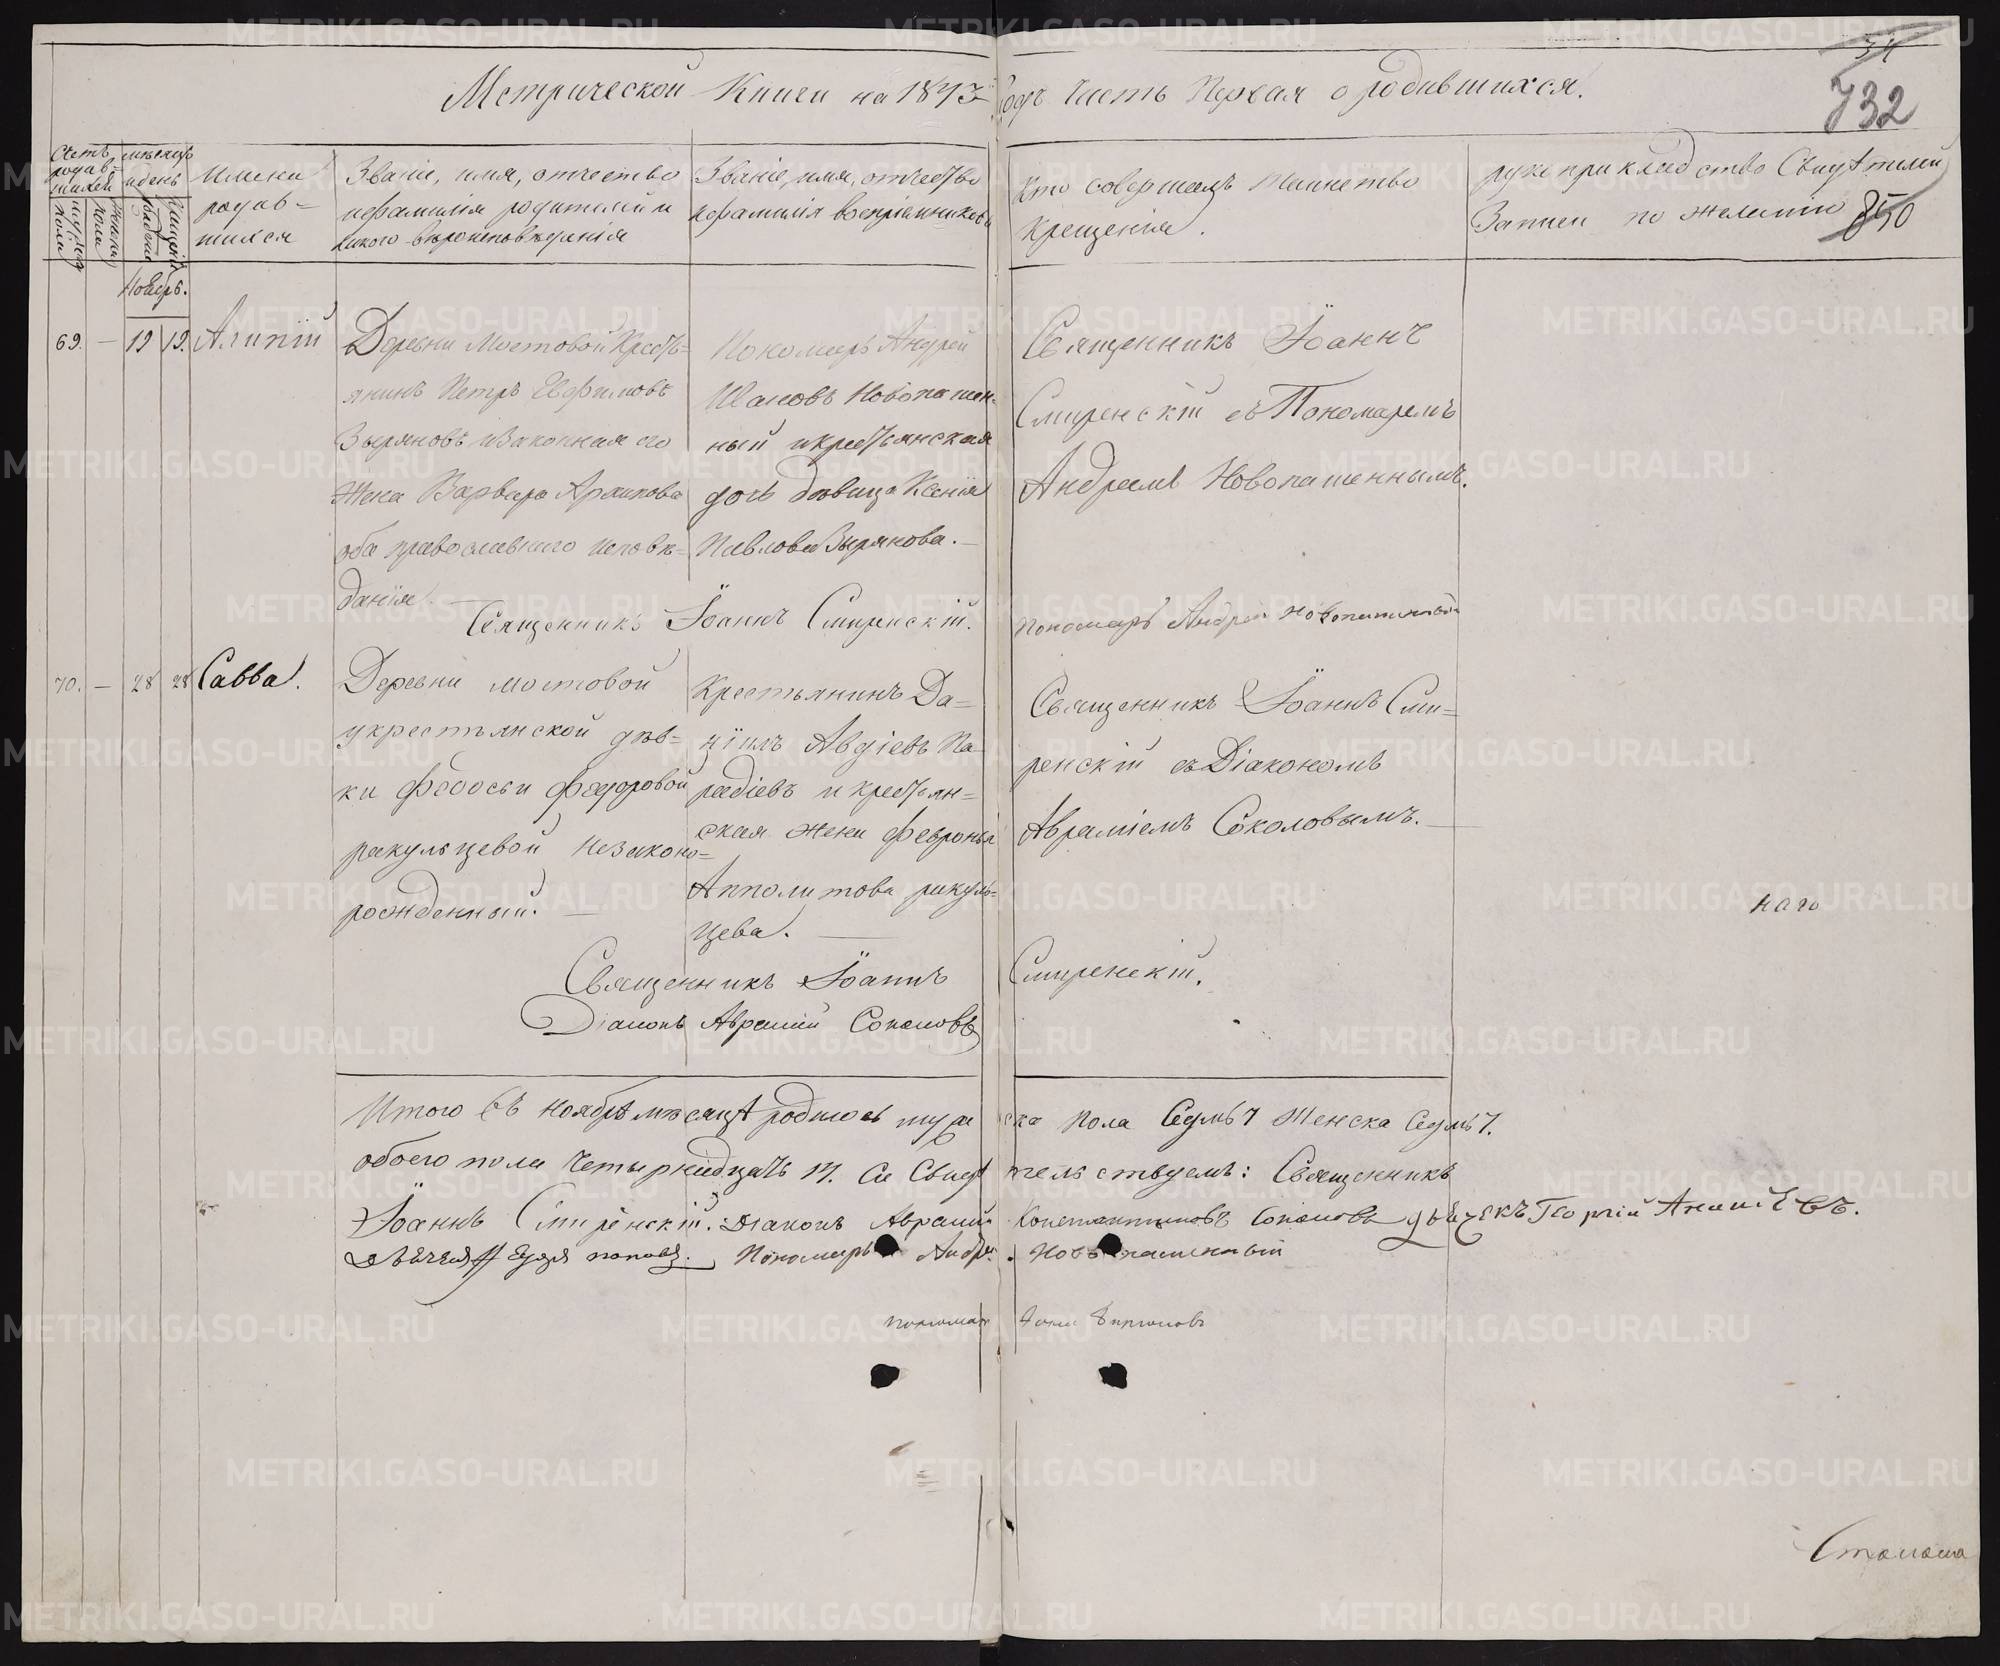 34
732
Метрической Книги на 1873 Годъ Часть Первая о родившихся.
Счетъ родив-
шихся
Мужеска пола
Женска пола
мѣсяцъ
и день
Рожденія
Крещенія
Имена
родив-
шихся
Званіе, имя, отчество
и фамилія родителей и
какого вѣроисповѣданія
Званіе, имя, отчество
и фамилія воспріемниковъ
Кто совершалъ таинство
Крещенія.
рукоприкладство Свидѣтелей
Записи по желанію
850
Ноябрь.
69. — 19 19. Алипій
Деревни Мостовой Кресть=
янинъ Петръ Евфимовъ
Зыряновъ и Законная его
Жена Варвара Архипова
оба православнаго исповѣ=
данія.
Пономарь Андрей
Ивановъ Новопашен-
ный и крестьянская
дочь дѣвица Ксенія
Павлова Зырянова.
Священникъ Іоаннъ
Смиренскій съ Пономаремъ
Андреемъ Новопашеннымъ.
Священникъ Іоаннъ Смиренскій.
Пономарь Андрей Новопашенный
70. — 28 28 Савва.
Деревни мостовой
у крестьянской дѣв=
ки Феодосьи Федоровой
ракульцевой незаконо=
рожденный.
Крестьянинъ Да=
ніилъ Авдіевъ Па
радіевъ и крестьян=
ская жена Февронья
Апполитова ракуль=
цева.
Священникъ Іоаннъ Сми=
ренскій съ Діакономъ
Авраміемъ Соколовымъ.
наго
Священникъ Іоаннъ Смиренскій.
Діаконъ Аврамій Соколовъ
Итого въ ноябрѣ мѣсяцѣ родилось мужеска пола Седмь 7 Женска Седмь 7.
обоего пола Четырнадцать 14. Си Свидѣтельствуемъ: Священникъ
Іоаннъ Смиренскій. Діаконъ Аврамій Константиновъ Соколовъ дьячекъ Георгій
попов. Пономарь Андрей Новопашенный
пономарь